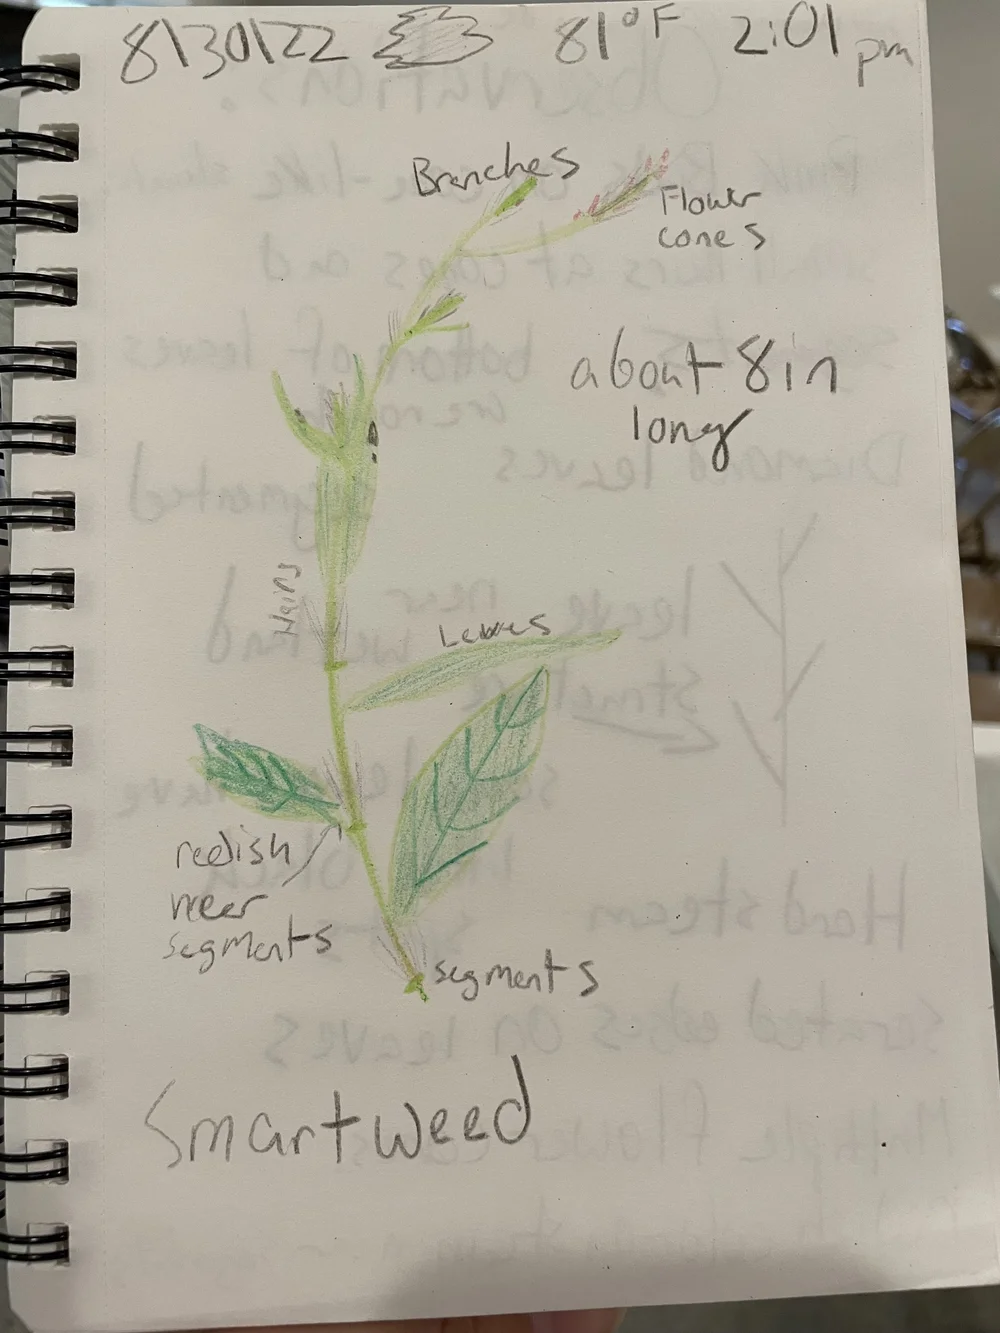 8\30\22 81°F 2:01 pm
Branches
Flower
cones
about 8in
long
Hairs
Leaves
redish
neer
segments
segments
Smartweed